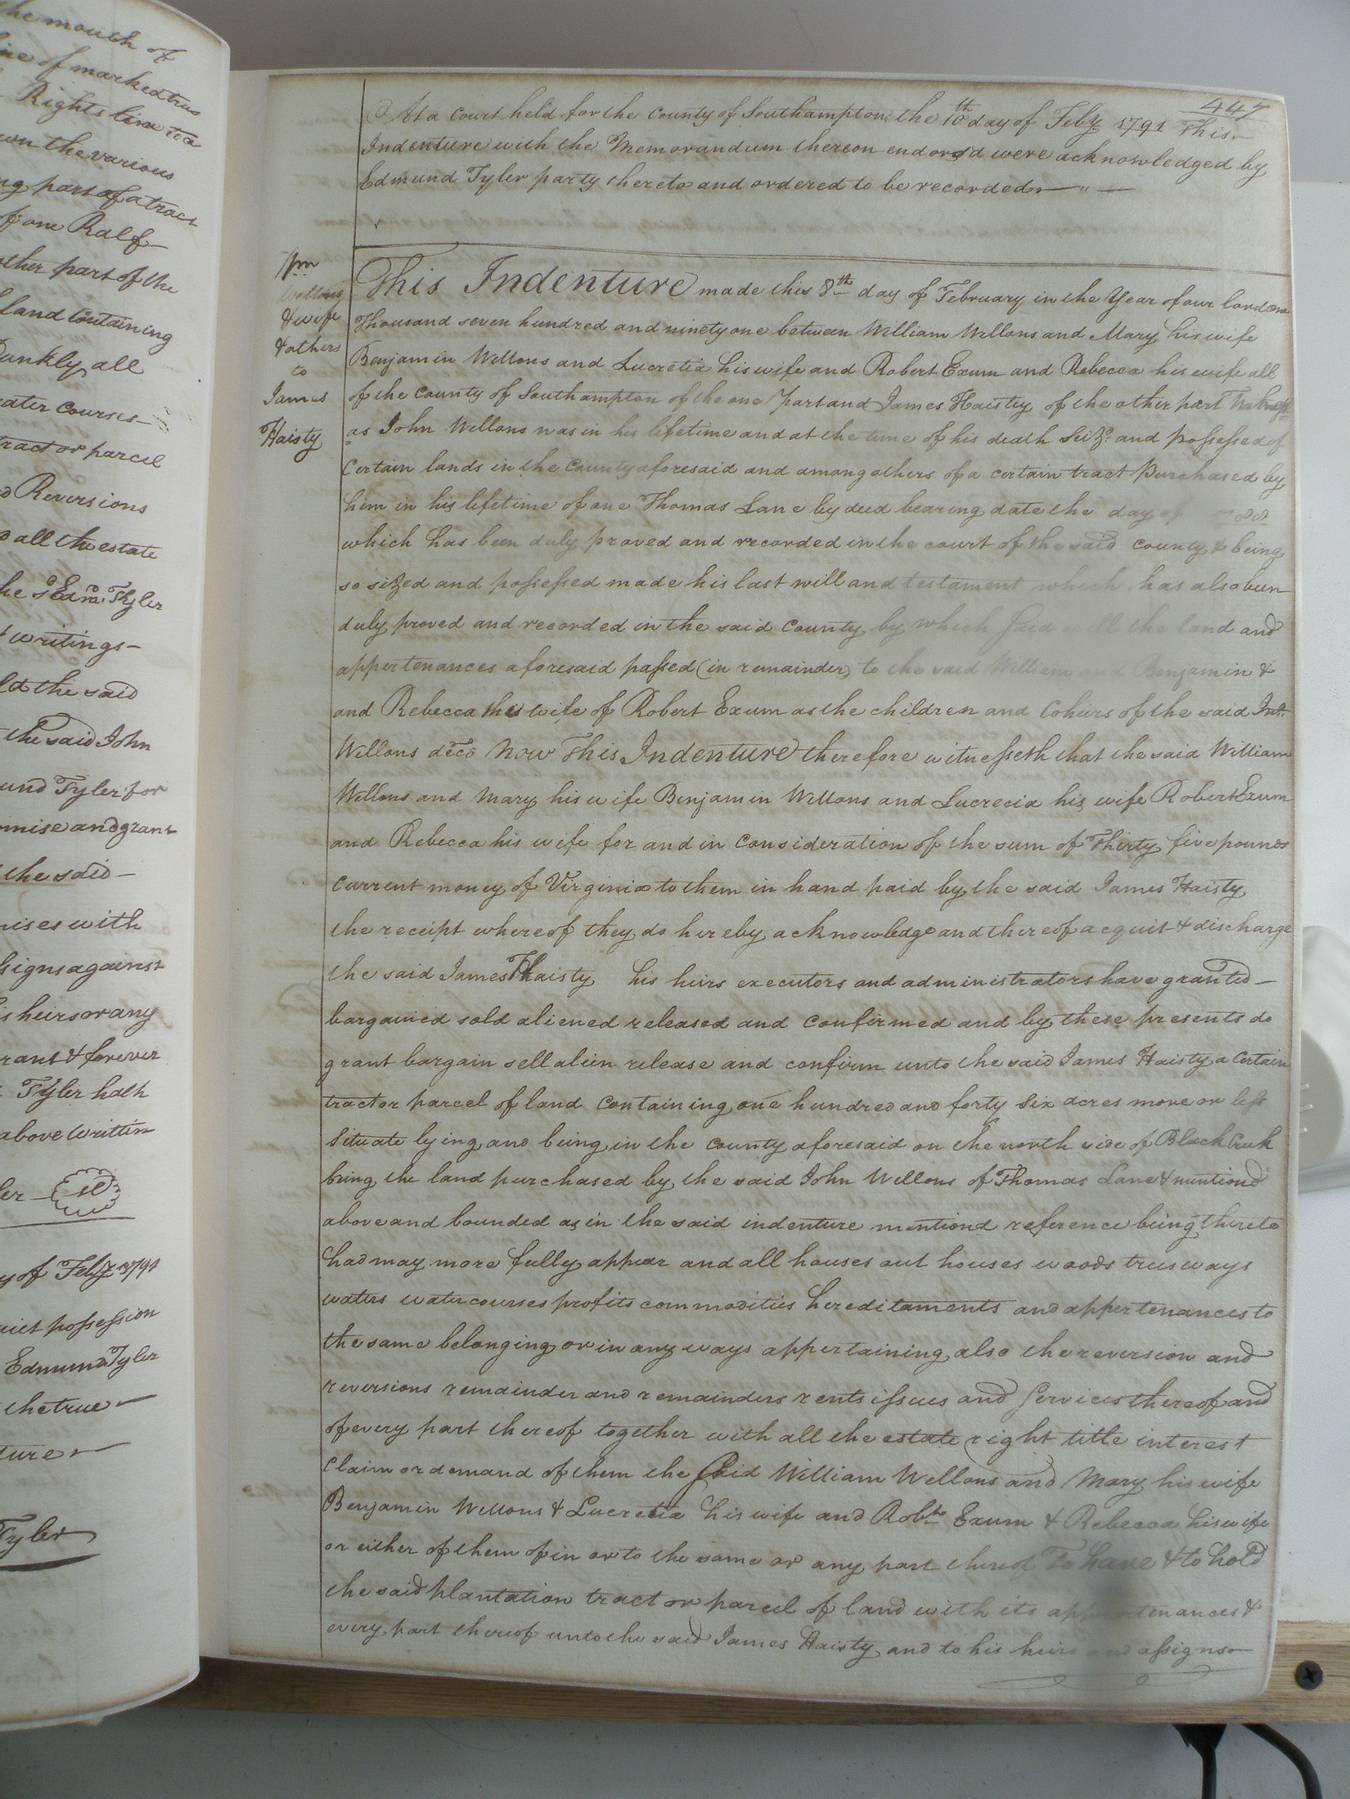 the mouth of
line of marked trees
Rights line to a
down the various
ng part of a tract
from Ralf
other part of the
land containing
Dunkly all
water courses
tract or parcel
Reversions
all the estate
he sd. Edmd. Tyler
writings
the said
the said John
und Tyler for
omise and grant
the said
mises with
signs against
s heirs or any
rant & forever
Tyler hath
above written
ler
y of Feby. 1791
uiet possession
Edmund Tyler
the true
ture
Tyler
447
At a Court held for the County of Southampton the 10th day of Feby. 1791 This
Indenture with the Memorandum thereon endorsd were acknowledged by
Edmund Tyler party thereto and ordered to be recorded
Wm
Wellons
& wife
& others
to
James
Haisty
This Indenture made this 8th day of February in the Year of our lord one
Thousand seven hundred and ninety one between William Wellons and Mary his wife
Benjamin Wellons and Lucretia his wife and Robert Exum and Rebecca his wife all
of the County of Southampton of the one part and James Haisty of the other part
as John Wellons was in his lifetime and at the time of his death Seizd. and possessed of
Certain lands in the County aforesaid and among others of a certain tract Purchased by
him in his lifetime of one Thomas Lane by deed bearing date the day of
which has been duly proved and recorded in the court of the said County & being
so sized and possessed made his last will and testament which has also been
duly proved and recorded in the said County by which said the land and
appertenances aforesaid passed (in remainder) to the said William and Benjamin &
and Rebecca the wife of Robert Exum as the children and Coheirs of the said
Wellons decd. Now This Indenture therefore witnesseth that the said William
Wellons and Mary his wife Benjamin Wellons and Lucrecia his wife Robert Exum
and Rebecca his wife for and in Consideration of the sum of Thirty five pounds
Current money of Virginia to them in hand paid by the said James Haisty
the receipt whereof they do hereby acknowledge and thereof acquit & discharge
the said James Haisty his heirs executors and administrators have granted
bargained sold aliened released and confirmed and by these presents do
grant bargain sell alien release and confirm unto the said James Haisty a certain
tract or parcel of land Containing one hundred and forty Six acres more or less
Situate lying and being in the County aforesaid on the north side of Black Creek
being the land purchased by the said John Wellons of Thomas Lane & mentiond
above and bounded as in the said indenture mentiond reference being thereto
had may more fully appear and all houses out houses woods trees ways
waters watercourses profits commodities hereditaments and appertenances to
the same belonging or in any ways appertaining also the reversion and
reversions remainder and remainders rents issues and Services thereof and
of every part thereof together with all the estate right title interest
Claim or demand of them the Said William Wellons and Mary his wife
Benjamin Wellons & Lucretia his wife and Robt. Exum & Rebecca his wife
or either of them of in or to the same or any part thereof To have & to hold
the said plantation tract or parcel of land with its appertenances &
every part thereof unto the said James Haisty and to his heirs and assigns